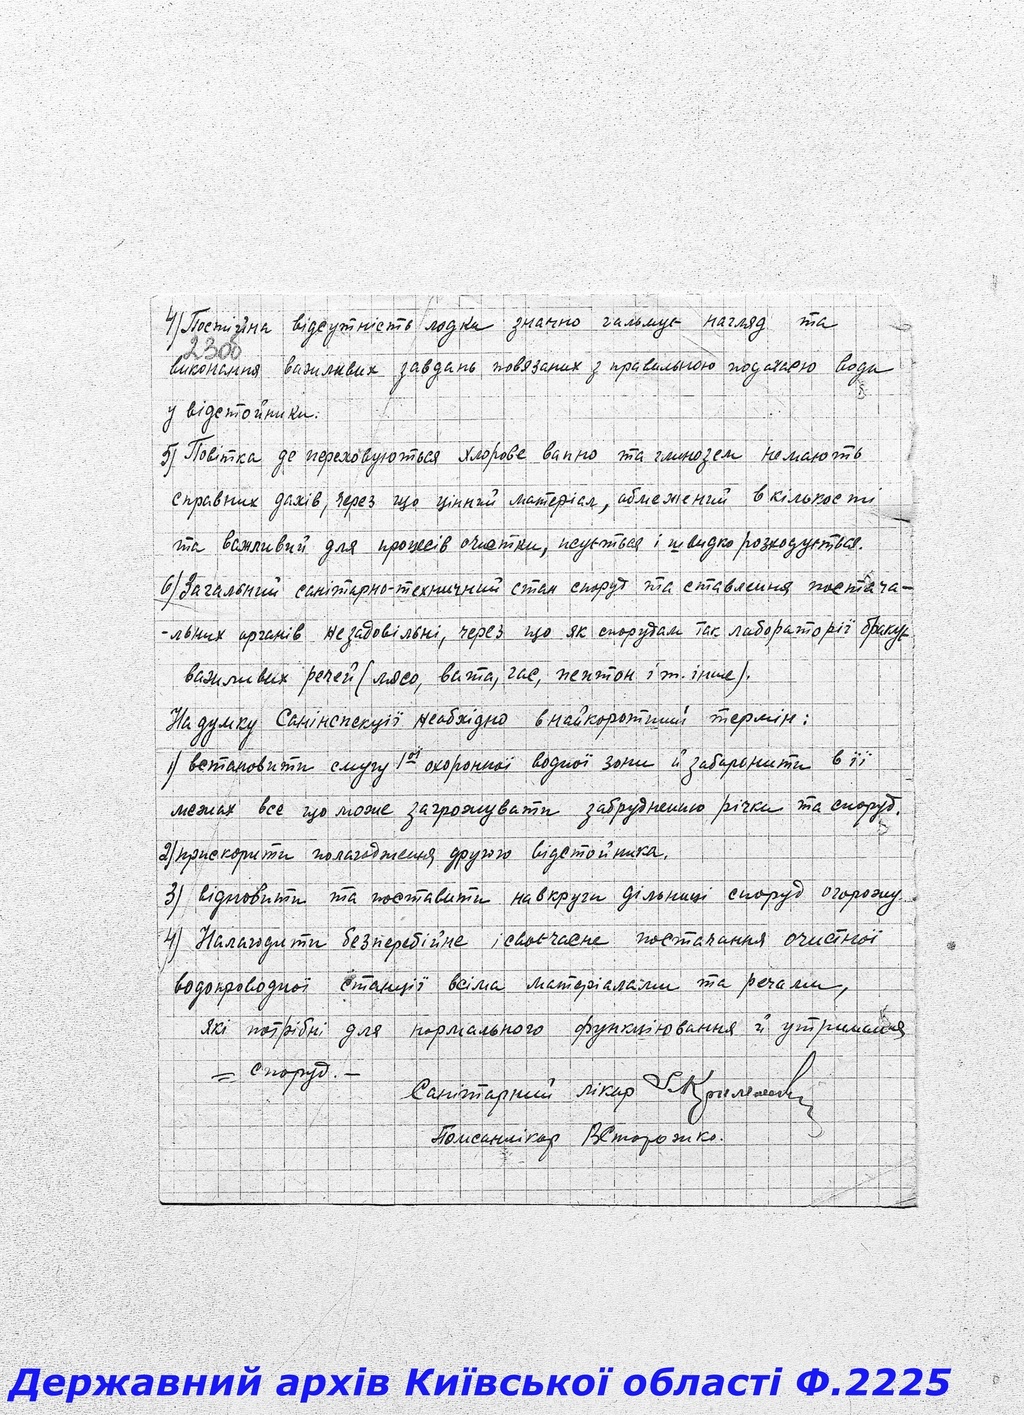 4) Постійна відсутність лодки значно гальмує нагляд та
230б
виконання важливих завдань повязаних з правильною подачею води
у відстойники.
5) Повітка де переховуються хлорове вапно та глинозем немають
справних дахів, через що цінний матеріал, обмежений в кількості
та важливий для процесів очистки, псується і швидко розходується.
6) Загальний санітарно-техничний стан споруд та ставлення постача-
-льних органів незадовільні, через що як спорудам так лабораторії бракує
важливих речей (мясо, вата, гас, пептон і т. інше).
На думку Санінспекції необхідно в найкоротший термін:
1) встановити смугу 1ої охоронної водної зони й заборонити в її
межах все що може загрожувати забрудненню річки та споруд.
2) прискорити полагодження другого відстойника.
3) відновити та поставити навкруги дільниці споруд огорожу.
4) Налагодити безперебійне і своєчасне постачання очистної
водопроводної станції всіма матеріалами та речами,
які потрібні для нормального функціювання й утримання
= споруд. –
Санітарний лікар
Помсанлікар ВСторожко.
Державний архів Київської області Ф.2225